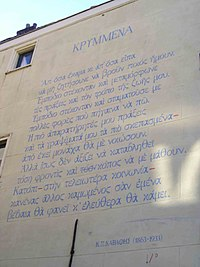 ΚΡΥΜΜΕΝΑ
Απ' όσα έκαμα κι απ' όσα είπα
να μη ζητήσουνε να βρουν ποιός ήμουν.
Εμπόδιο στέκονταν και μεταμόρφωνε
τες πράξεις και τον τρόπο της ζωής μου.
Εμπόδιο στέκονταν και σταματούσε με
πολλές φορές που πήγαινα να πω.
Η πιο απαρατήρητές μου πράξεις
και τα γραψίματά μου τα πιο σκεπασμένα—
από εκεί μονάχα θα με νοιώσουν.
Αλλά ίσως δεν αξίζει να καταβληθεί
τόση φροντίς και τόσος κόπος να με μάθουν.
Κατόπι— στην τελειοτέρα κοινωνία—
κανένας άλλος καμωμένος σαν εμένα
βέβαια θα φανεί κ' ελεύθερα θα κάμει.
Κ.Π. ΚΑΒΑΦΗΣ (1863-1933)